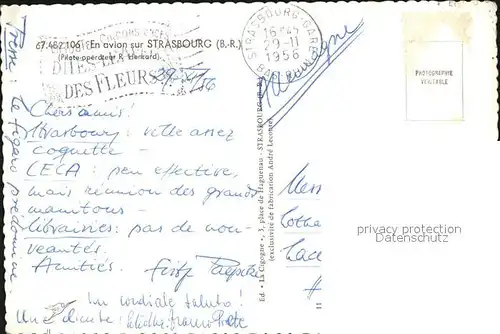 67.482.106 - En avion sur STRASBOURG (B.-R.)
(Pilote-opérateur R. Henrard)
DITES-LE AVEC
DES FLEURS
STRASBOURG-GARE
16H45
29-11
1956
29-XI-56
Allemagne
PHOTOGRAPHIE
VÉRITABLE
Chers amis!
Strasbourg: ville assez
coquette -
CECA: peu effective,
mais réunion des grands
manitous -
librairies: pas de nou-
veautés.
Amitiés.
Un cordiale saluto!
Presse: Le Figaro prédomine.
Ed. « La Cigogne », 3, place de Haguenau - STRASBOURG (B.-R.)
(exclusivité de fabrication André Leconte)
privacy protection
Datenschutz